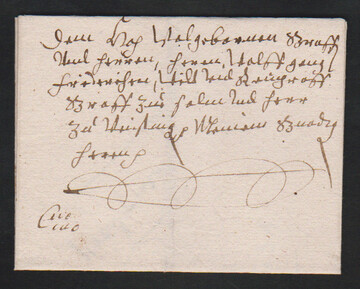 Dem Hoch Wolgebornen Graff
Und Herren, Herrn, Wolff gang
Friderichen, Wild und Reingraff
Graff zue Salm und Herr
zu Vinsting, Meinem Gnedig
Herren
Cito
cito